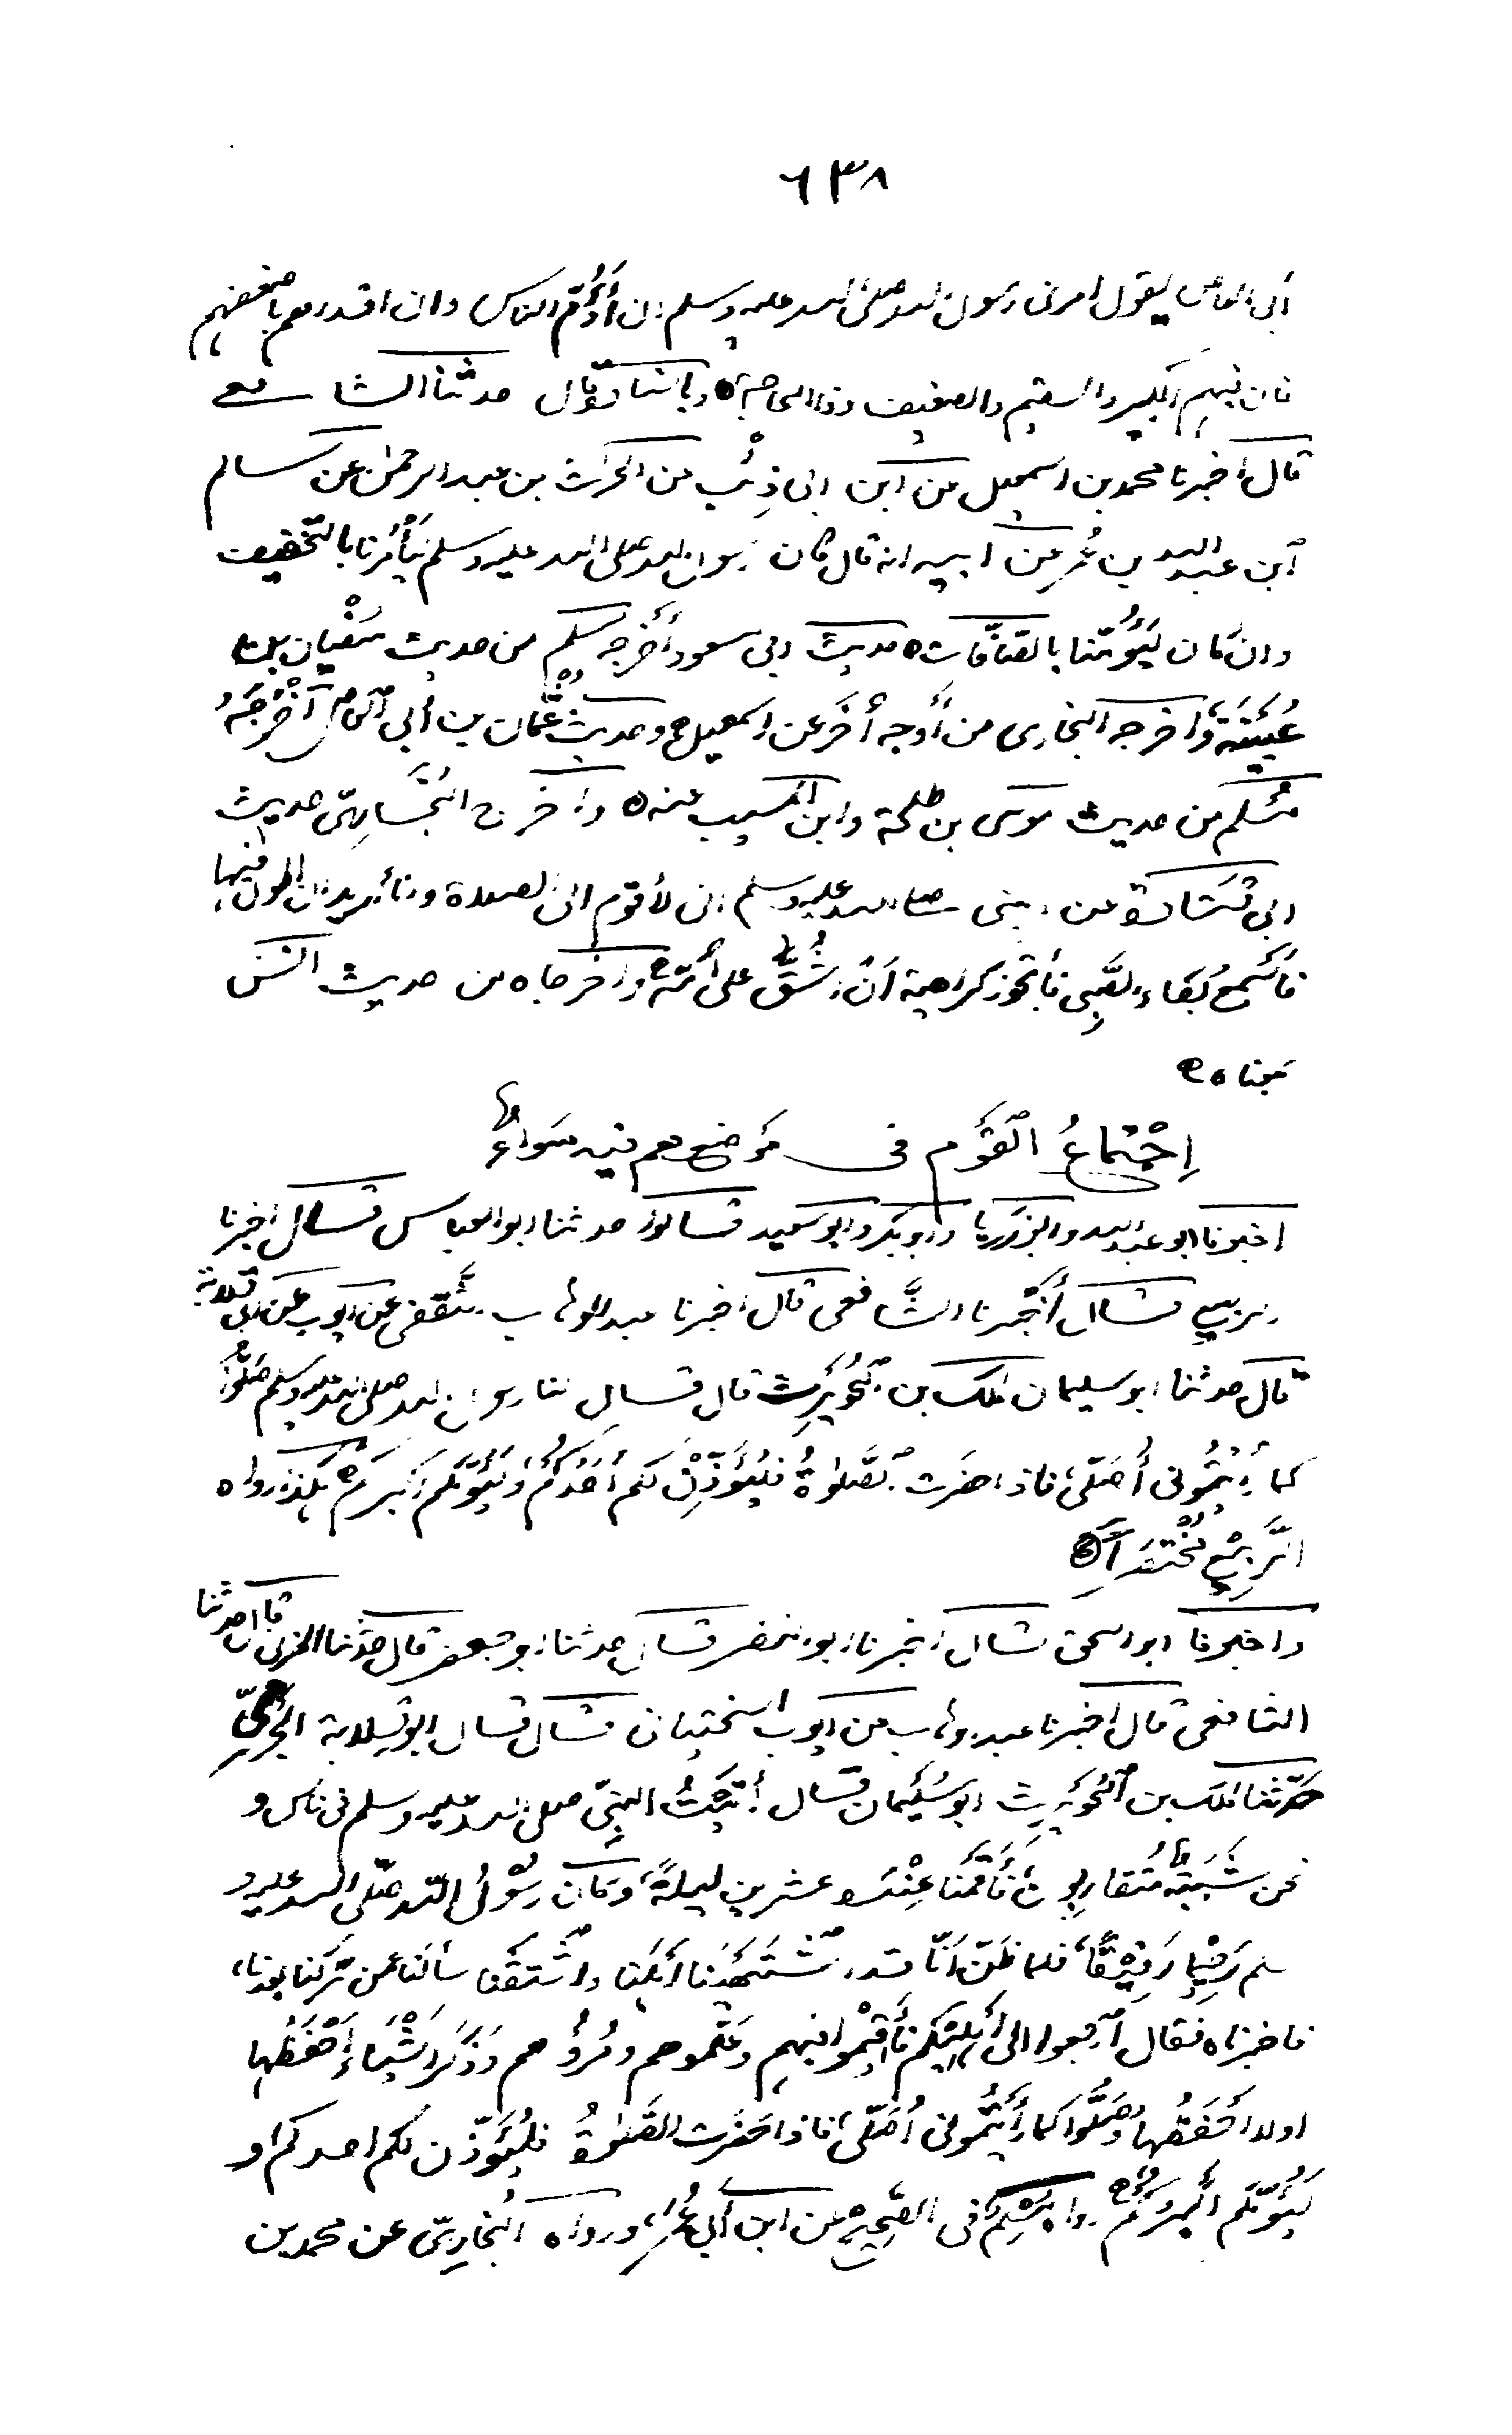 ٦٣٨
أبي العاص يقول امرني رسول الله صلى الله عليه وسلم ان أَؤُمَّ الناس وان اقدرهم باضعفهم
فان فيهم الكبير والسقيم والضعيف وذا الحاجة ٥ وباسناده قال حدثنا الشافعي
قال اخبرنا محمد بن اسمعيل عن ابن ابي ذِئْب عن الحرث بن عبد الرحمن عن سالم
ابن عبد الله بن عُمر عن ابيه انه قال كان رسول الله صلى الله عليه وسلم يَأْمُرنا بالتَّخفيف
وان كان ليَؤُمّنا بالصّافّات ٥ حديث ابي مسعود أَخرجه مسلم من حديث سُفْيان بن
عُيَيْنَة وَأخرجه البخاري من أَوجه أُخَر عن اسمعيل ٥ وحديث عُثْمان بن أبي العاص أَخْرَجَهُ
مُسْلم من حديث موسى بن طلحة وابن المسيب عنه ٥ واخرج البُخَاريّ حديث
ابي قَتَادة عن النبي صلى الله عليه وسلم اني لأقوم الى الصلاة وانا أريد ان اطول فيها
فأسْمعُ بُكاء الصَّبِي فأتجوز كراهية أَنْ أشُقَّ على أُمّه ٥ واخرجاه من حديث انس
معناه ٥
اِجْتماعُ القَوْم في مَوْضع هم فيه سَواءٌ
اخبرنا ابو عبد الله وابو زكريا وابو بكر وابو سعيد قالوا حدثنا ابو العباس قال اخبرنا
الربيع قال أَخْبرنا الشَّافعي قال اخبرنا عبد الوهاب الثَّقفي عن ايوب عن ابي قلابة
قال حدثنا ابو سليمان ملك بن الحُوَيْرِث قال قال لنا رسول الله صلى الله عليه وسلم صَلُّوا
كما رَأيْتُمُوني أُصَلّي فاذا حضَرت الصَّلوةُ فليُؤَذِّنْ لكم أَحَدُكُمْ ولْيَؤُمّكم اكبَركُمْ ٥ هكذا رواه
الرَّبيْع مُخْتَصَراً ٥
واخبرنا ابو اسحق قال اخبرنا ابو النضر قال حدثنا ابو جعفر قال حدّثنا المزني قال حدثنا
الشافعي قال اخبرنا عبد الوهاب عن ايوب السختياني قال قال ابو قِلابة الجَرْميّ
حَدّثنا ملك بن الحُوَيْرِث ابو سُلَيْمان قال أَتَيْتُ النبيّ صلى الله عليه وسلم في ناس و
نحن شَبَبَةٌ مُتقاربون فأَقَمْنَا عِنْدَه عشرين ليلةً وكان رسُولُ الله صلّى الله عليه و
سلم رَحِيْما رَفِيْقًا فلما ظَنّ أَنّا قد اشْتَهَيْنَا أَهْلَنا واشْتَقْنا سألنا عمن تَرَكنا بعدنا
فاخبرناه فقال اَرْجعوا الى أَهْلِيكم فأَقيْمُوا فيهم وعَلّموهم ومُرُوْهم وَذَكَر أَشْيَاءَ أَحْفَظُها
اولا أَحْفَظُها وصَلُّوا كما رأَيْتُموني أُصَلّي فاذا حضَرت الصَّلوةُ فليُؤذّن لكم احدكم و
ليَؤُمّكم أكبَركُمْ ٥ رواه مُسْلِمٌ في الصَّحِيْحِ عن ابن أبي عُمَر ورواه البُخاريّ عن محمد بن